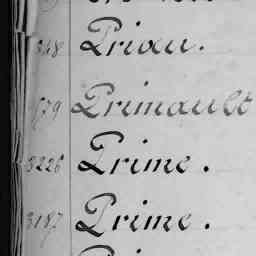 348 Priou.
979 Primault
3226 Prime.
3187 Prime.